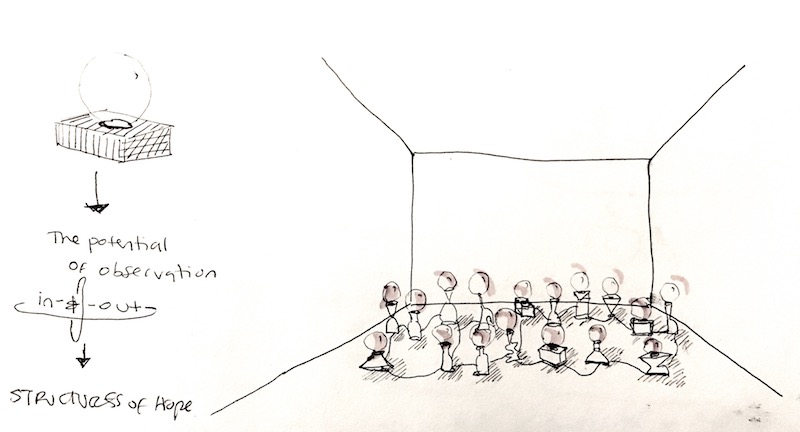 The potential
of observation
in-&-out
STRUCTURES OF HOPE